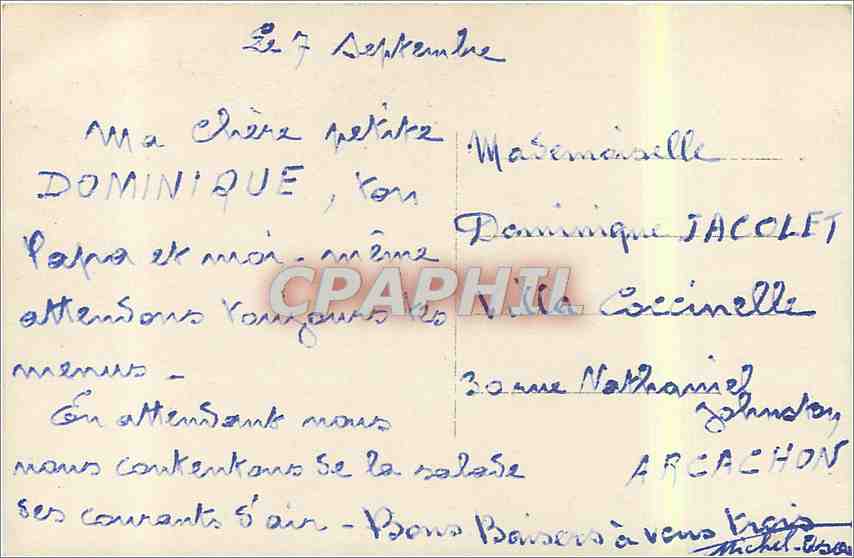 Le 7 Septembre
Ma Chère petite
DOMINIQUE, ton
Papa et moi-même
attendons toujours tes
menus -
En attendant nous
nous contentons de la salade
des courants d'air - Bons Baisers à vous trois
Michel-
Mademoiselle
Dominique JACOLET
Villa Coccinelle
30 rue Nathaniel
Johnston
ARCACHON
CPAPHIL